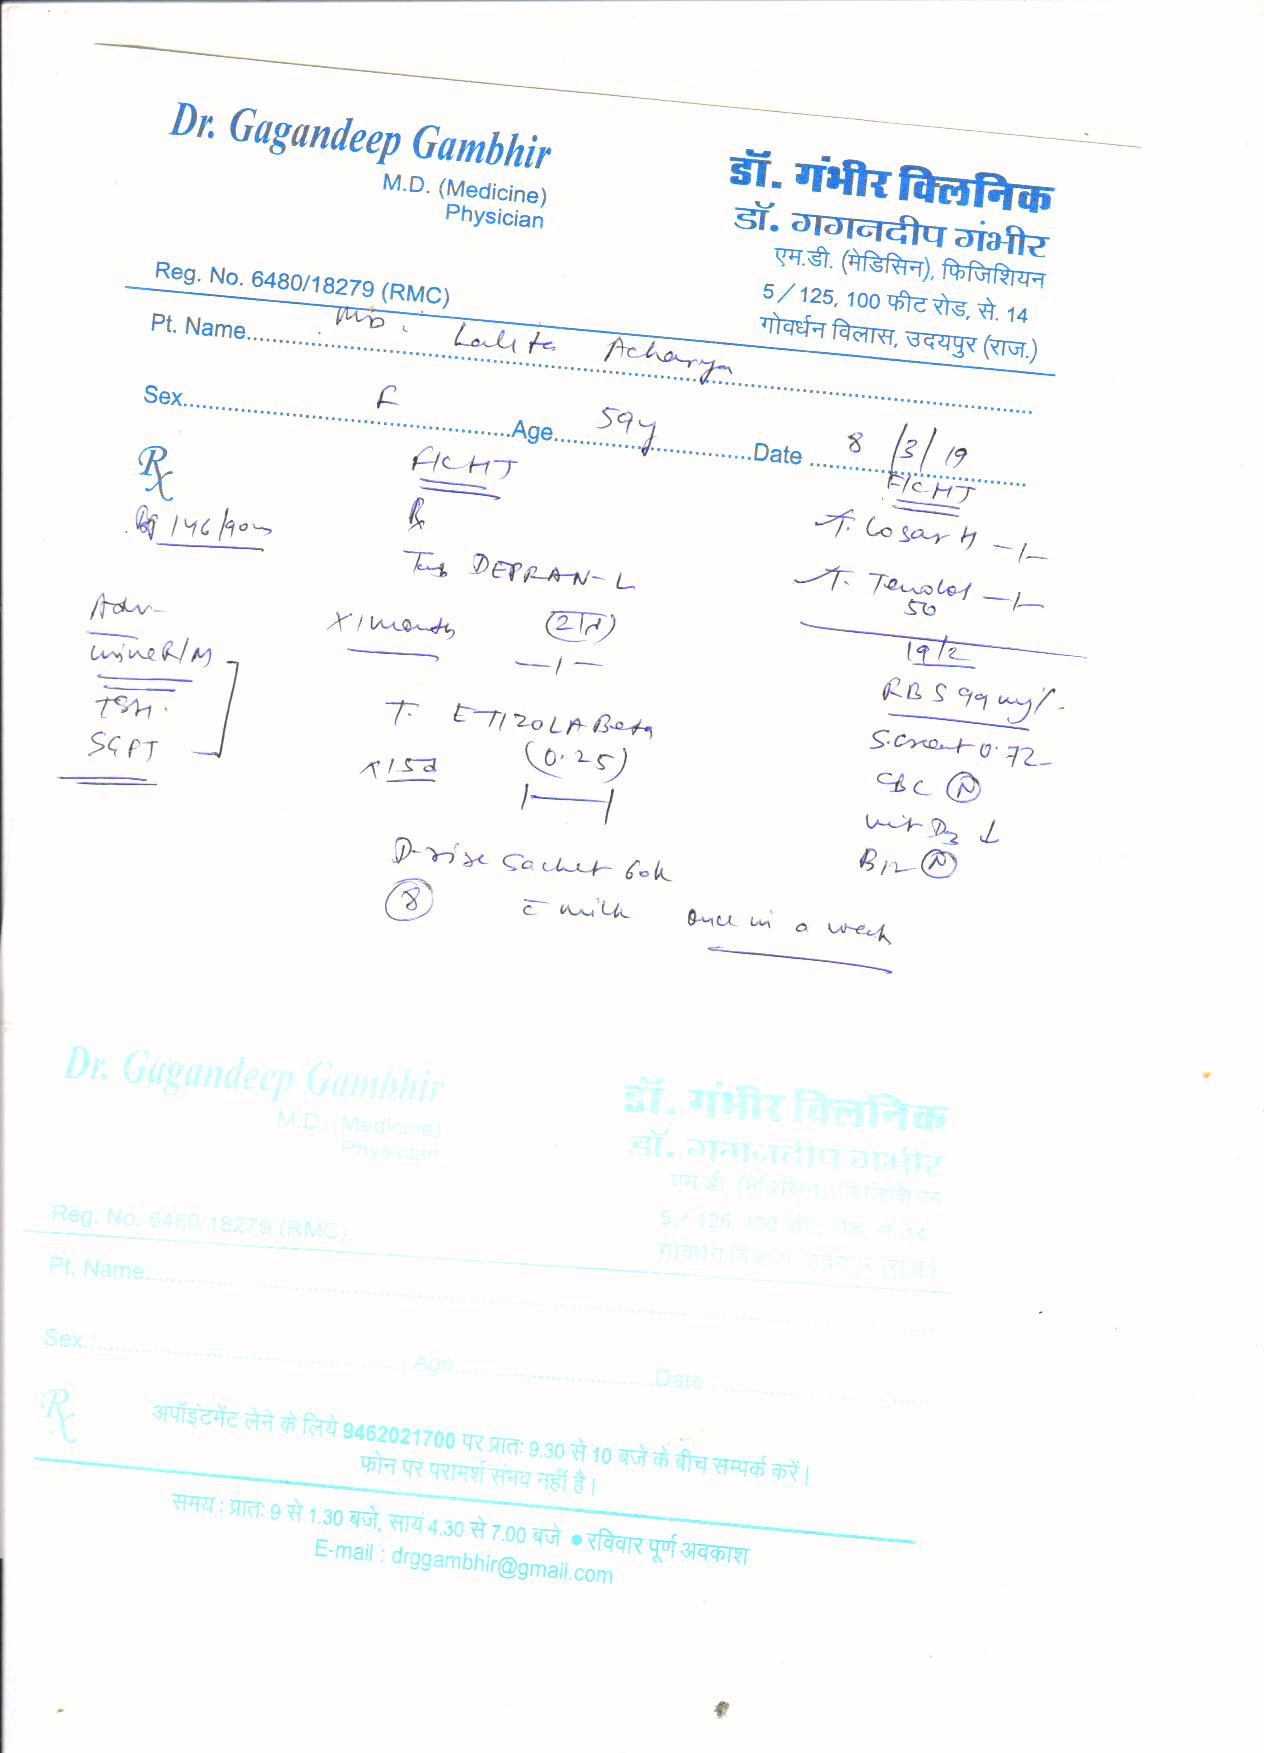 Dr. Gagandeep Gambhir
M.D. (Medicine)
Physician
Reg. No. 6480/18279 (RMC)
डॉ. गंभीर क्लिनिक
डॉ. गगनदीप गंभीर
एम.डी. (मेडिसिन), फिजिशियन
5/125, 100 फीट रोड, से. 14
गोवर्धन विलास, उदयपुर (राज.)
Pt. Name Lalita Acharya
Sex F Age 59y Date 8/3/19
Rx
146/90
Adv
urine R/M
TSH
SGPT
F/C HT
Rx
Tab DEPRAN-L
X 1 month
—1—
T. ETIZOLA Beta
X 15d (0.25)
1—1
D-rise sachet 60k
8 c̄ milk once in a week
F/C HT
T. Cosar H —1—
T. Tenolol —1—
50
19/2
RBS 99 mg%
S. creat 0.72
CBC N
vit D3 ↓
B12 N
Dr. Gagandeep Gambhir
M.D. (Medicine)
Physician
Reg. No. 6480/18279 (RMC)
डॉ. गंभीर क्लिनिक
डॉ. गगनदीप गंभीर
एम.डी. (मेडिसिन), फिजिशियन
5/125, 100 फीट रोड, से. 14
गोवर्धन विलास, उदयपुर (राज.)
Pt. Name
Sex Age Date
Rx
अपॉइंटमेंट लेने के लिये 9462021700 पर प्रातः 9.30 से 10 बजे के बीच सम्पर्क करें।
फोन पर परामर्श संभव नहीं है।
समय : प्रातः 9 से 1.30 बजे, सायं 4.30 से 7.00 बजे • रविवार पूर्ण अवकाश
E-mail : drggambhir@gmail.com